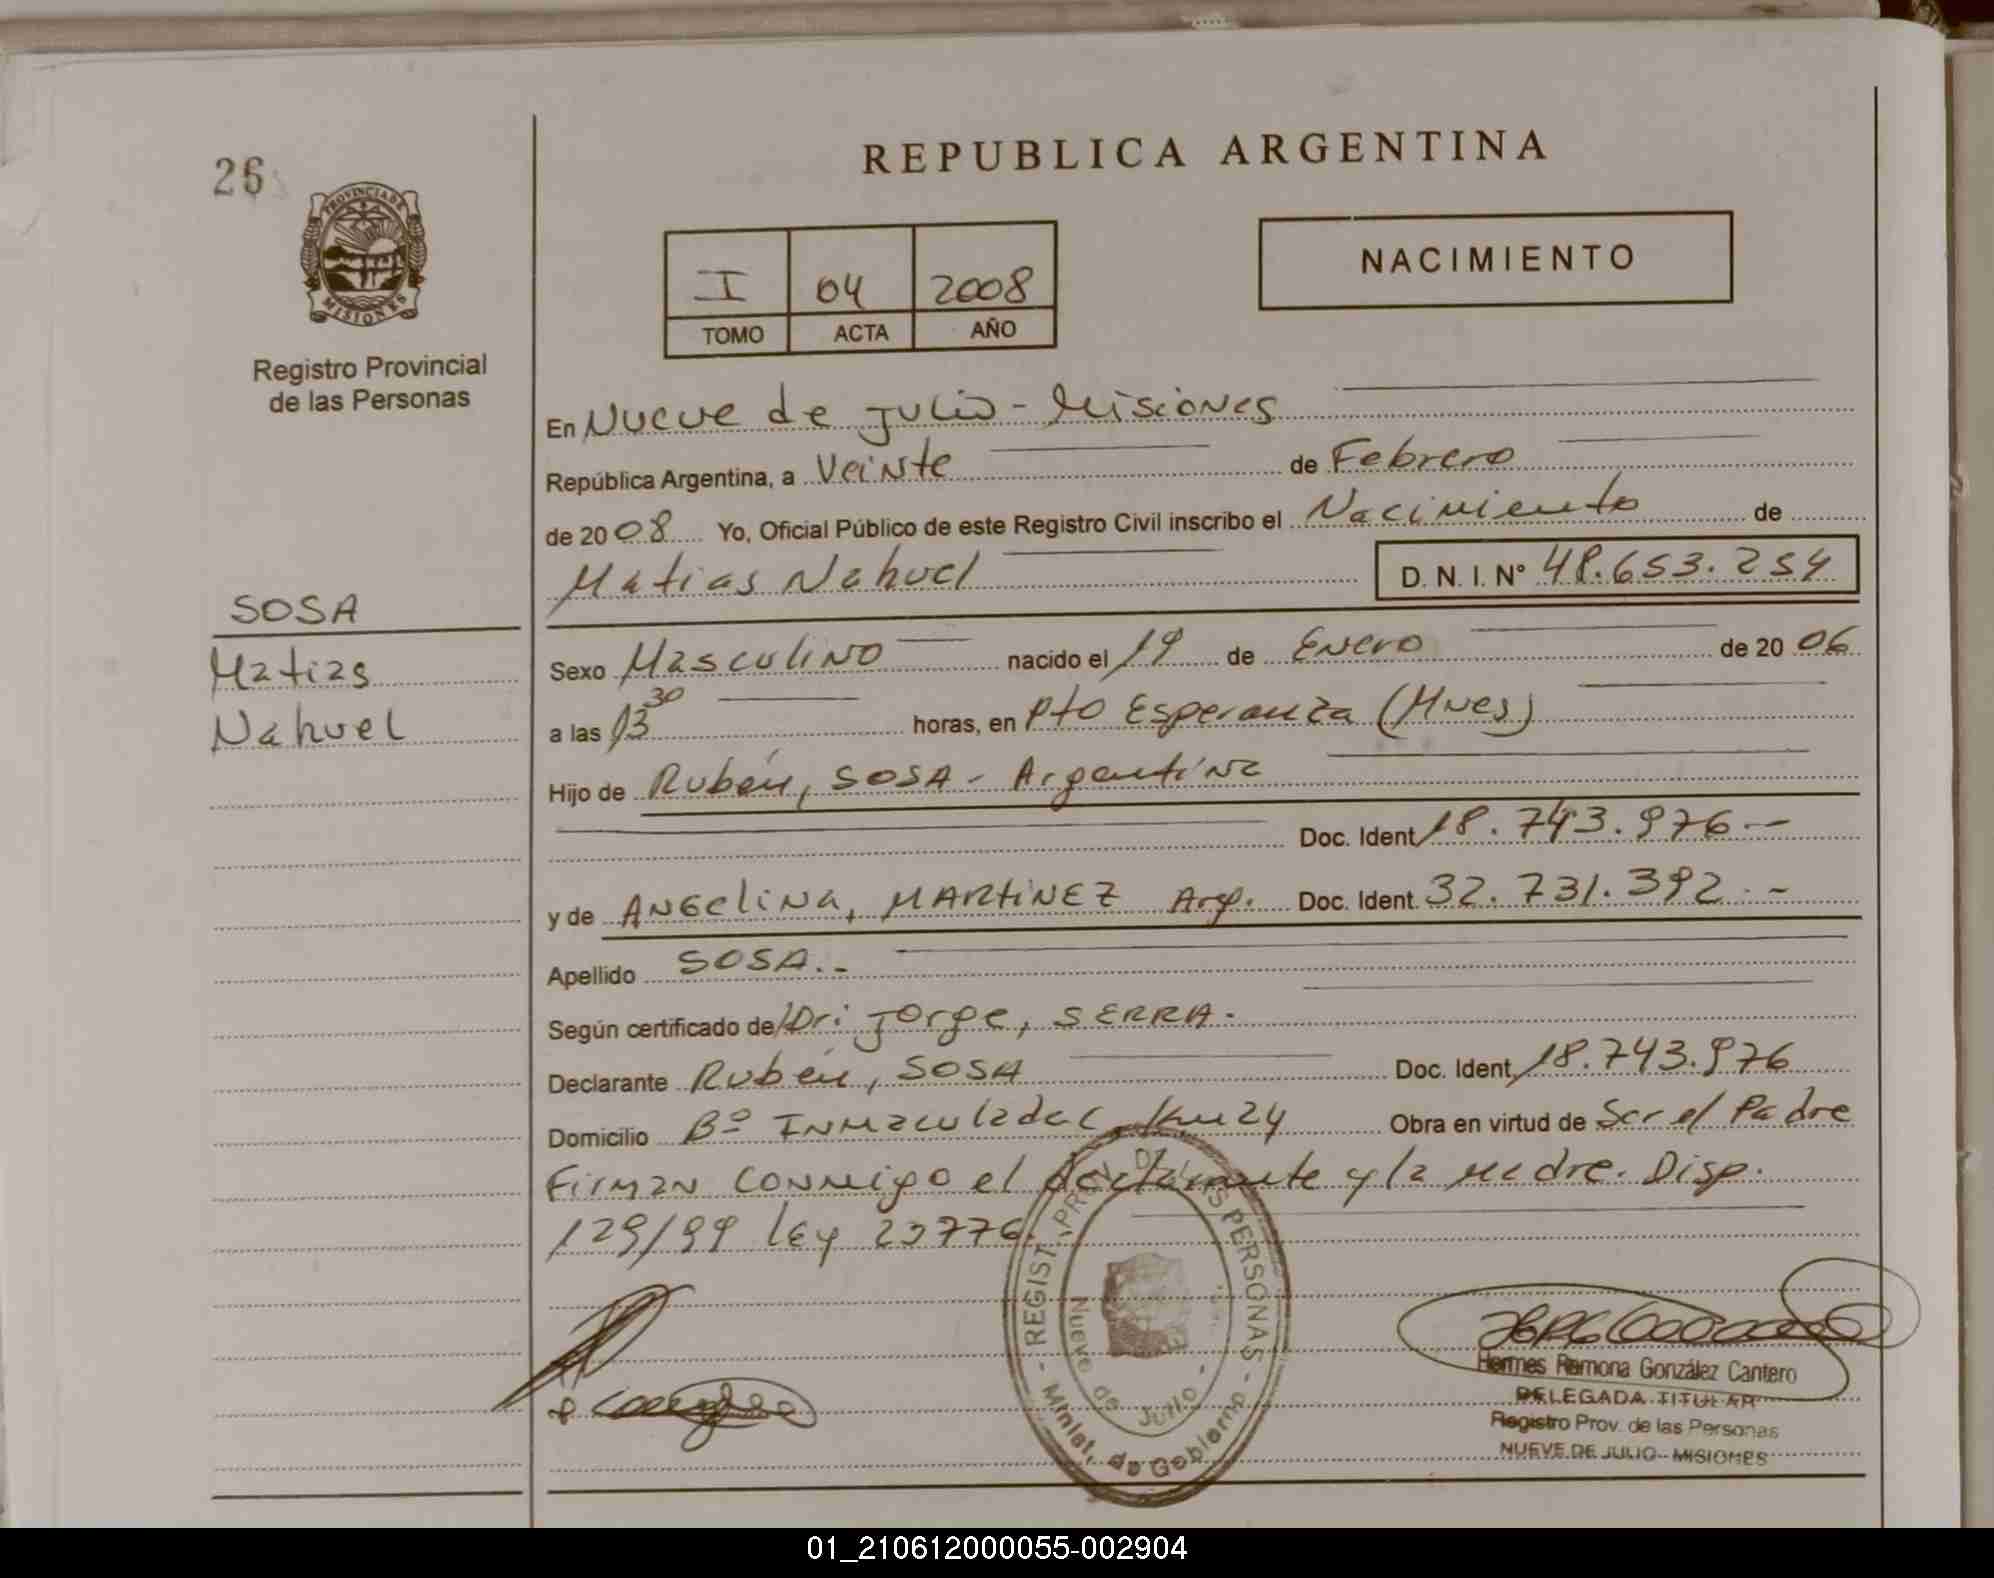 26
PROVINCIA DE
MISIONES
Registro Provincial
de las Personas
SOSA
Matias
Nahuel
REPUBLICA ARGENTINA
I 04 2008
TOMO ACTA AÑO
NACIMIENTO
En Nueve de Julio - Misiones
República Argentina, a Veinte de Febrero
de 2008 Yo, Oficial Público de este Registro Civil inscribo el Nacimiento de
Matias Nahuel D. N. I. N° 48.653.254
Sexo Masculino nacido el 19 de Enero de 2006
a las 13 30 horas, en Pto Esperanza (Mnes)
Hijo de Rubén, SOSA - Argentina
Doc. Ident 18.743.976.-
y de ANGELINA, MARTINEZ Arg. Doc. Ident. 32.731.392.-
Apellido SOSA.-
Según certificado de Dr: Jorge, SERRA.
Declarante Rubén, SOSA Doc. Ident. 18.743.976
Domicilio Bº Inmaculada C. Km 24 Obra en virtud de Ser el Padre
Firman conmigo el declarante y la madre. Disp.
129/99 Ley 23776.
REGIST. PROV. DE LAS PERSONAS
Nueve de Julio
Minist. de Gobierno
Hermes Ramona González Cantero
DELEGADA TITULAR
Registro Prov. de las Personas
NUEVE DE JULIO - MISIONES
01_210612000055-002904